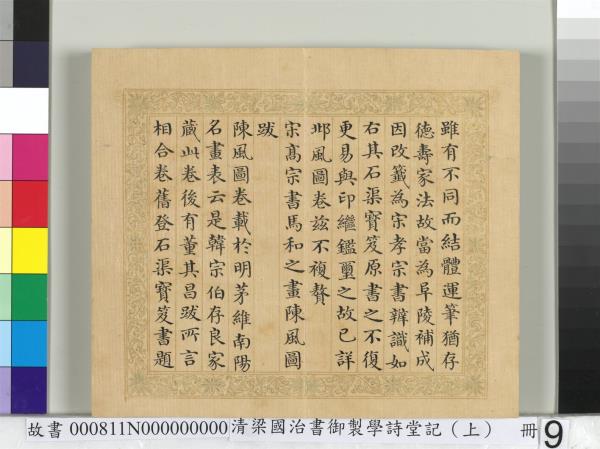 雖有不同而結體運筆猶存
德壽家法故當為阜陵補成
因改籤為宋孝宗書辨識如
右其石渠寶笈原書之不復
更易與印繼鑑璽之故已詳
邶風圖卷茲不複贅
宋高宗書馬和之畫陳風圖
跋
陳風圖卷載於明茅維南陽
名畫表云是韓宗伯存良家
藏此卷後有董其昌跋所言
相合卷舊登石渠寶笈書題
故書 000811N000000000 清梁國治書御製學詩堂記（上） 冊 9